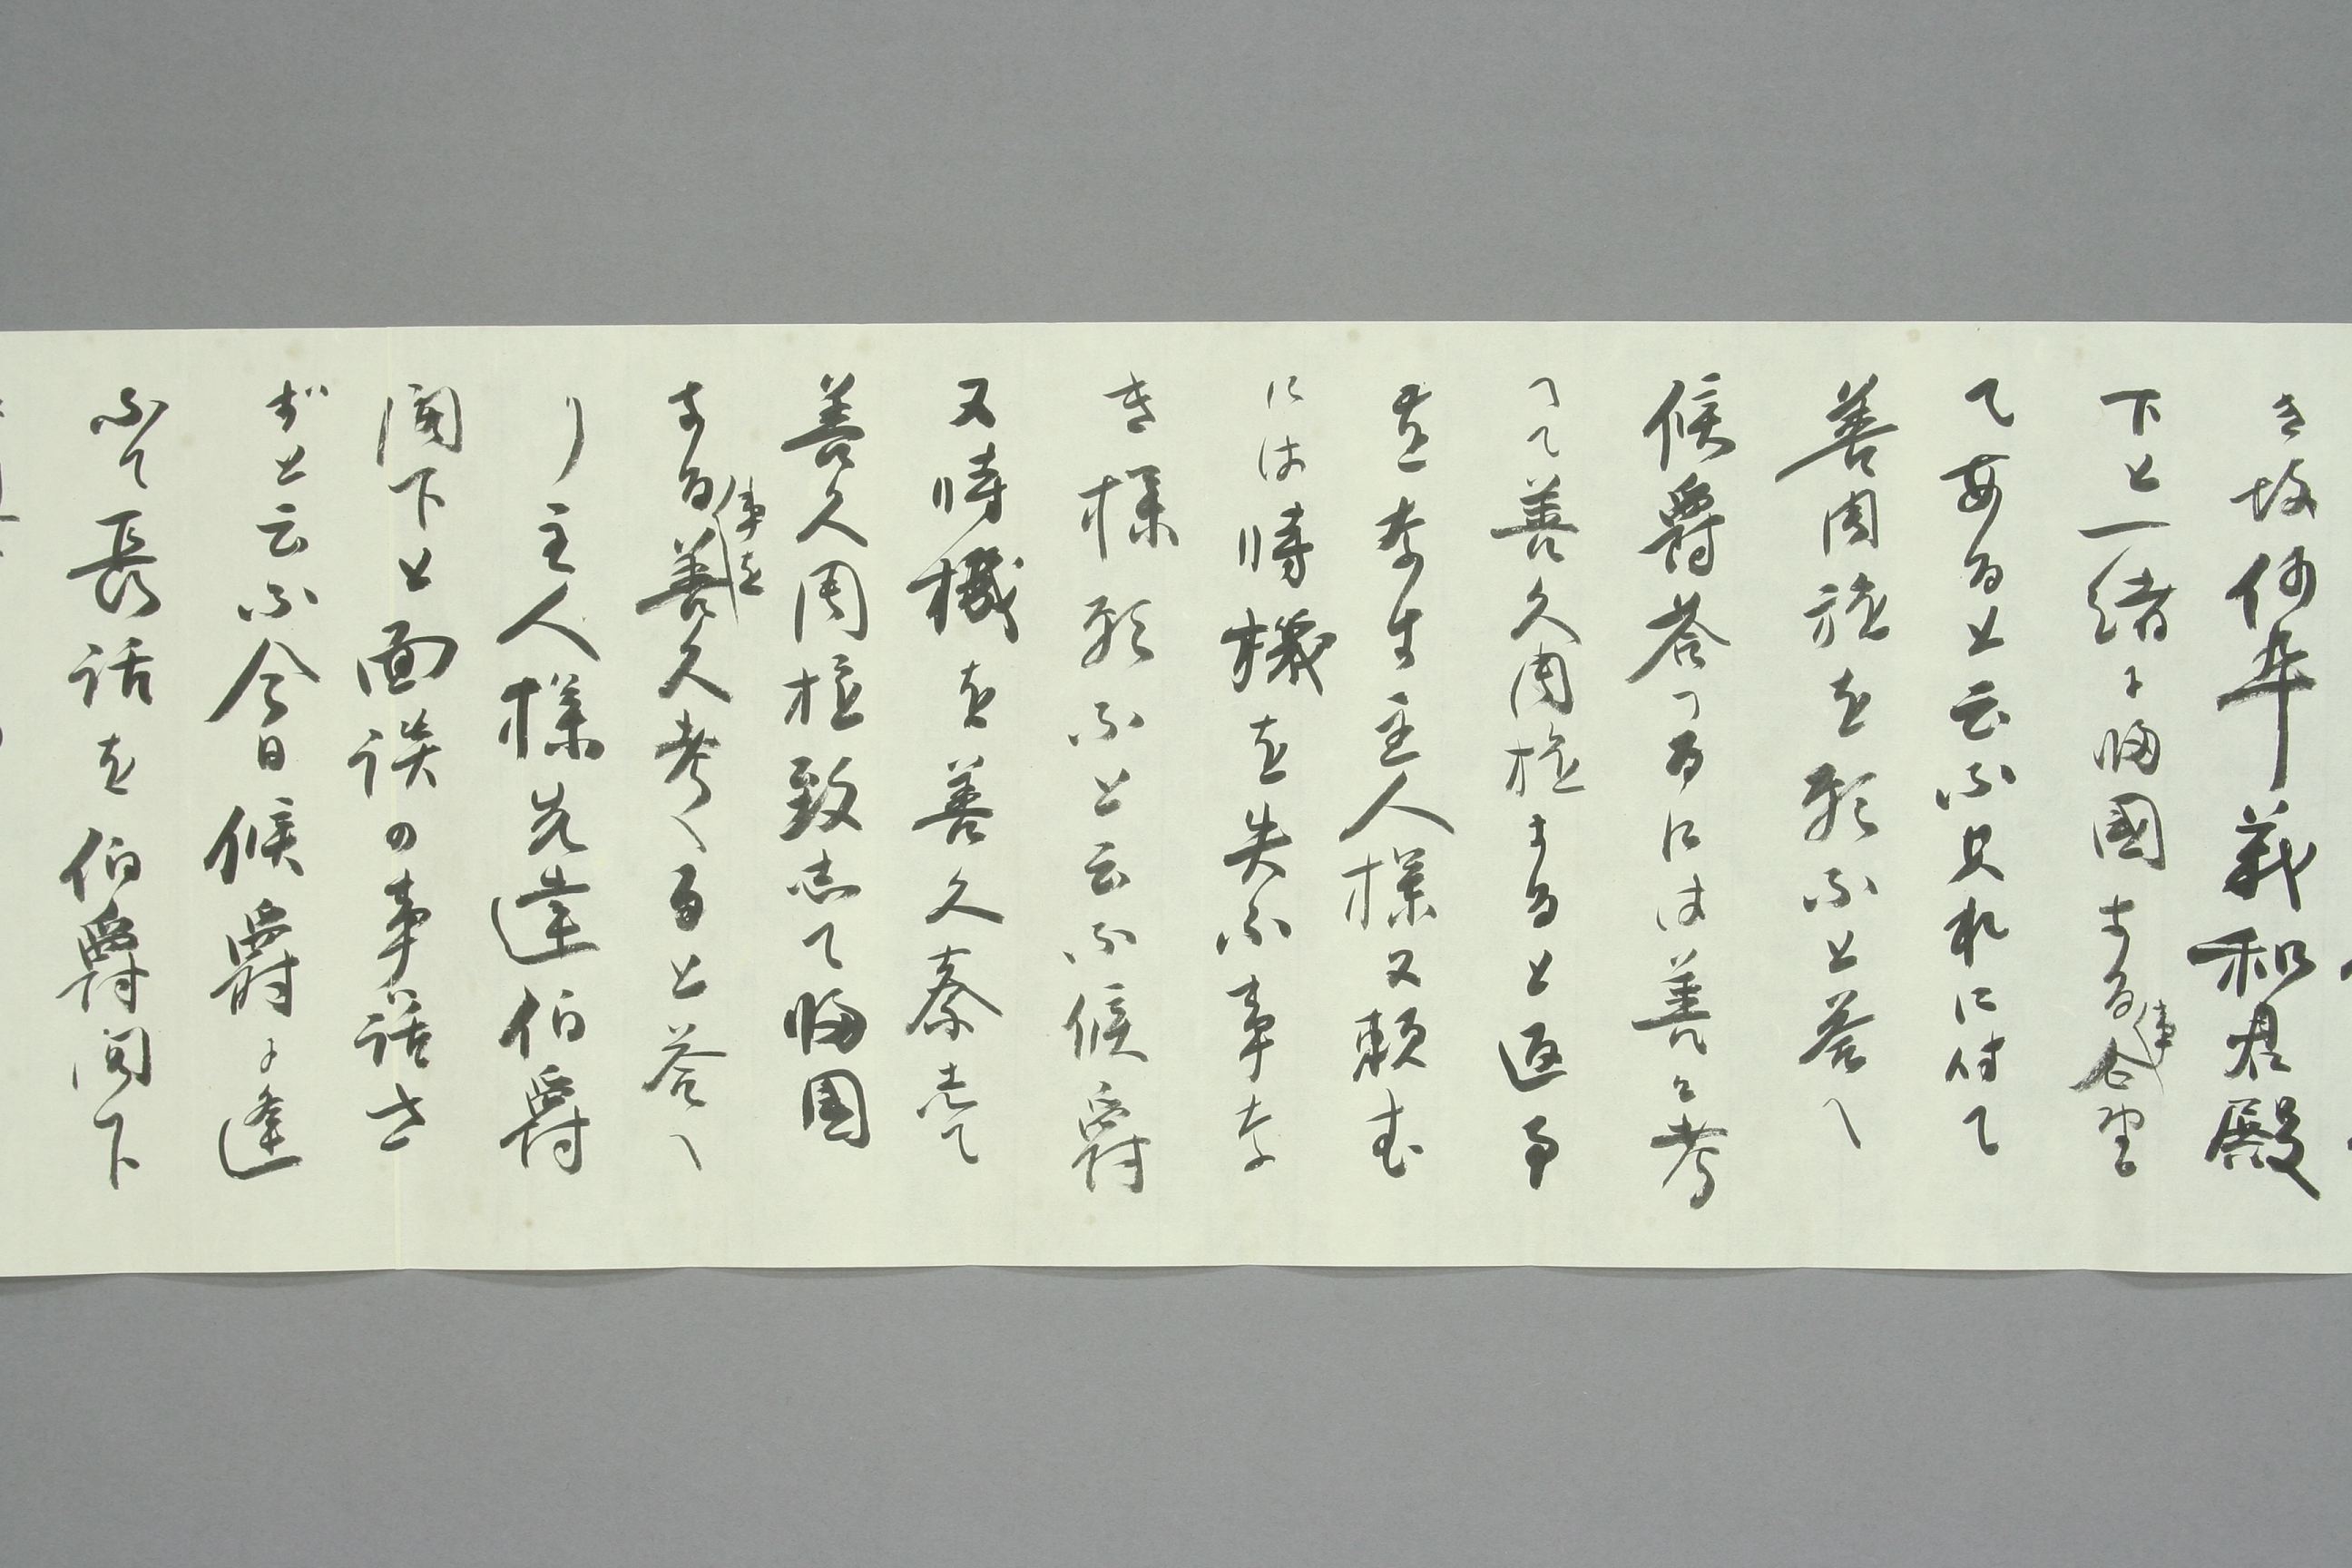 き故何卒義和君殿
下と一緒に帰國する事企望し
てあると云ふ只れに付て
善周旋を頼ふと答へ
候爵答つるには善く考
つて善久周旋すると返事
をなす主人様又頼む
には時機を失ふ事な
き様頼ふと云ふ候爵
又時機を善久奏して
善久周旋致して帰国
する事を善久考へると答へ
り主人様先達伯爵
閣下と面談の事話さ
ずと云ふ今日候爵に逢
ふて長話を伯爵閣下